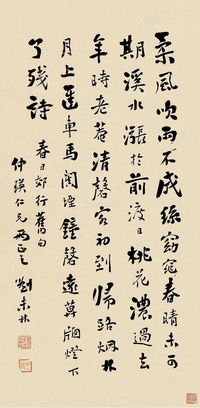 柔風吹雨不成絲窈窕春晴未可
期溪水漲於前渡日桃花濃過去
年時老菴清磬客初到歸路烟林
月上遲車馬闐闐鐘磬遠草烟燈下
了残詩
春日郊行舊句
仲瑛仁兄兩正之 劉未林